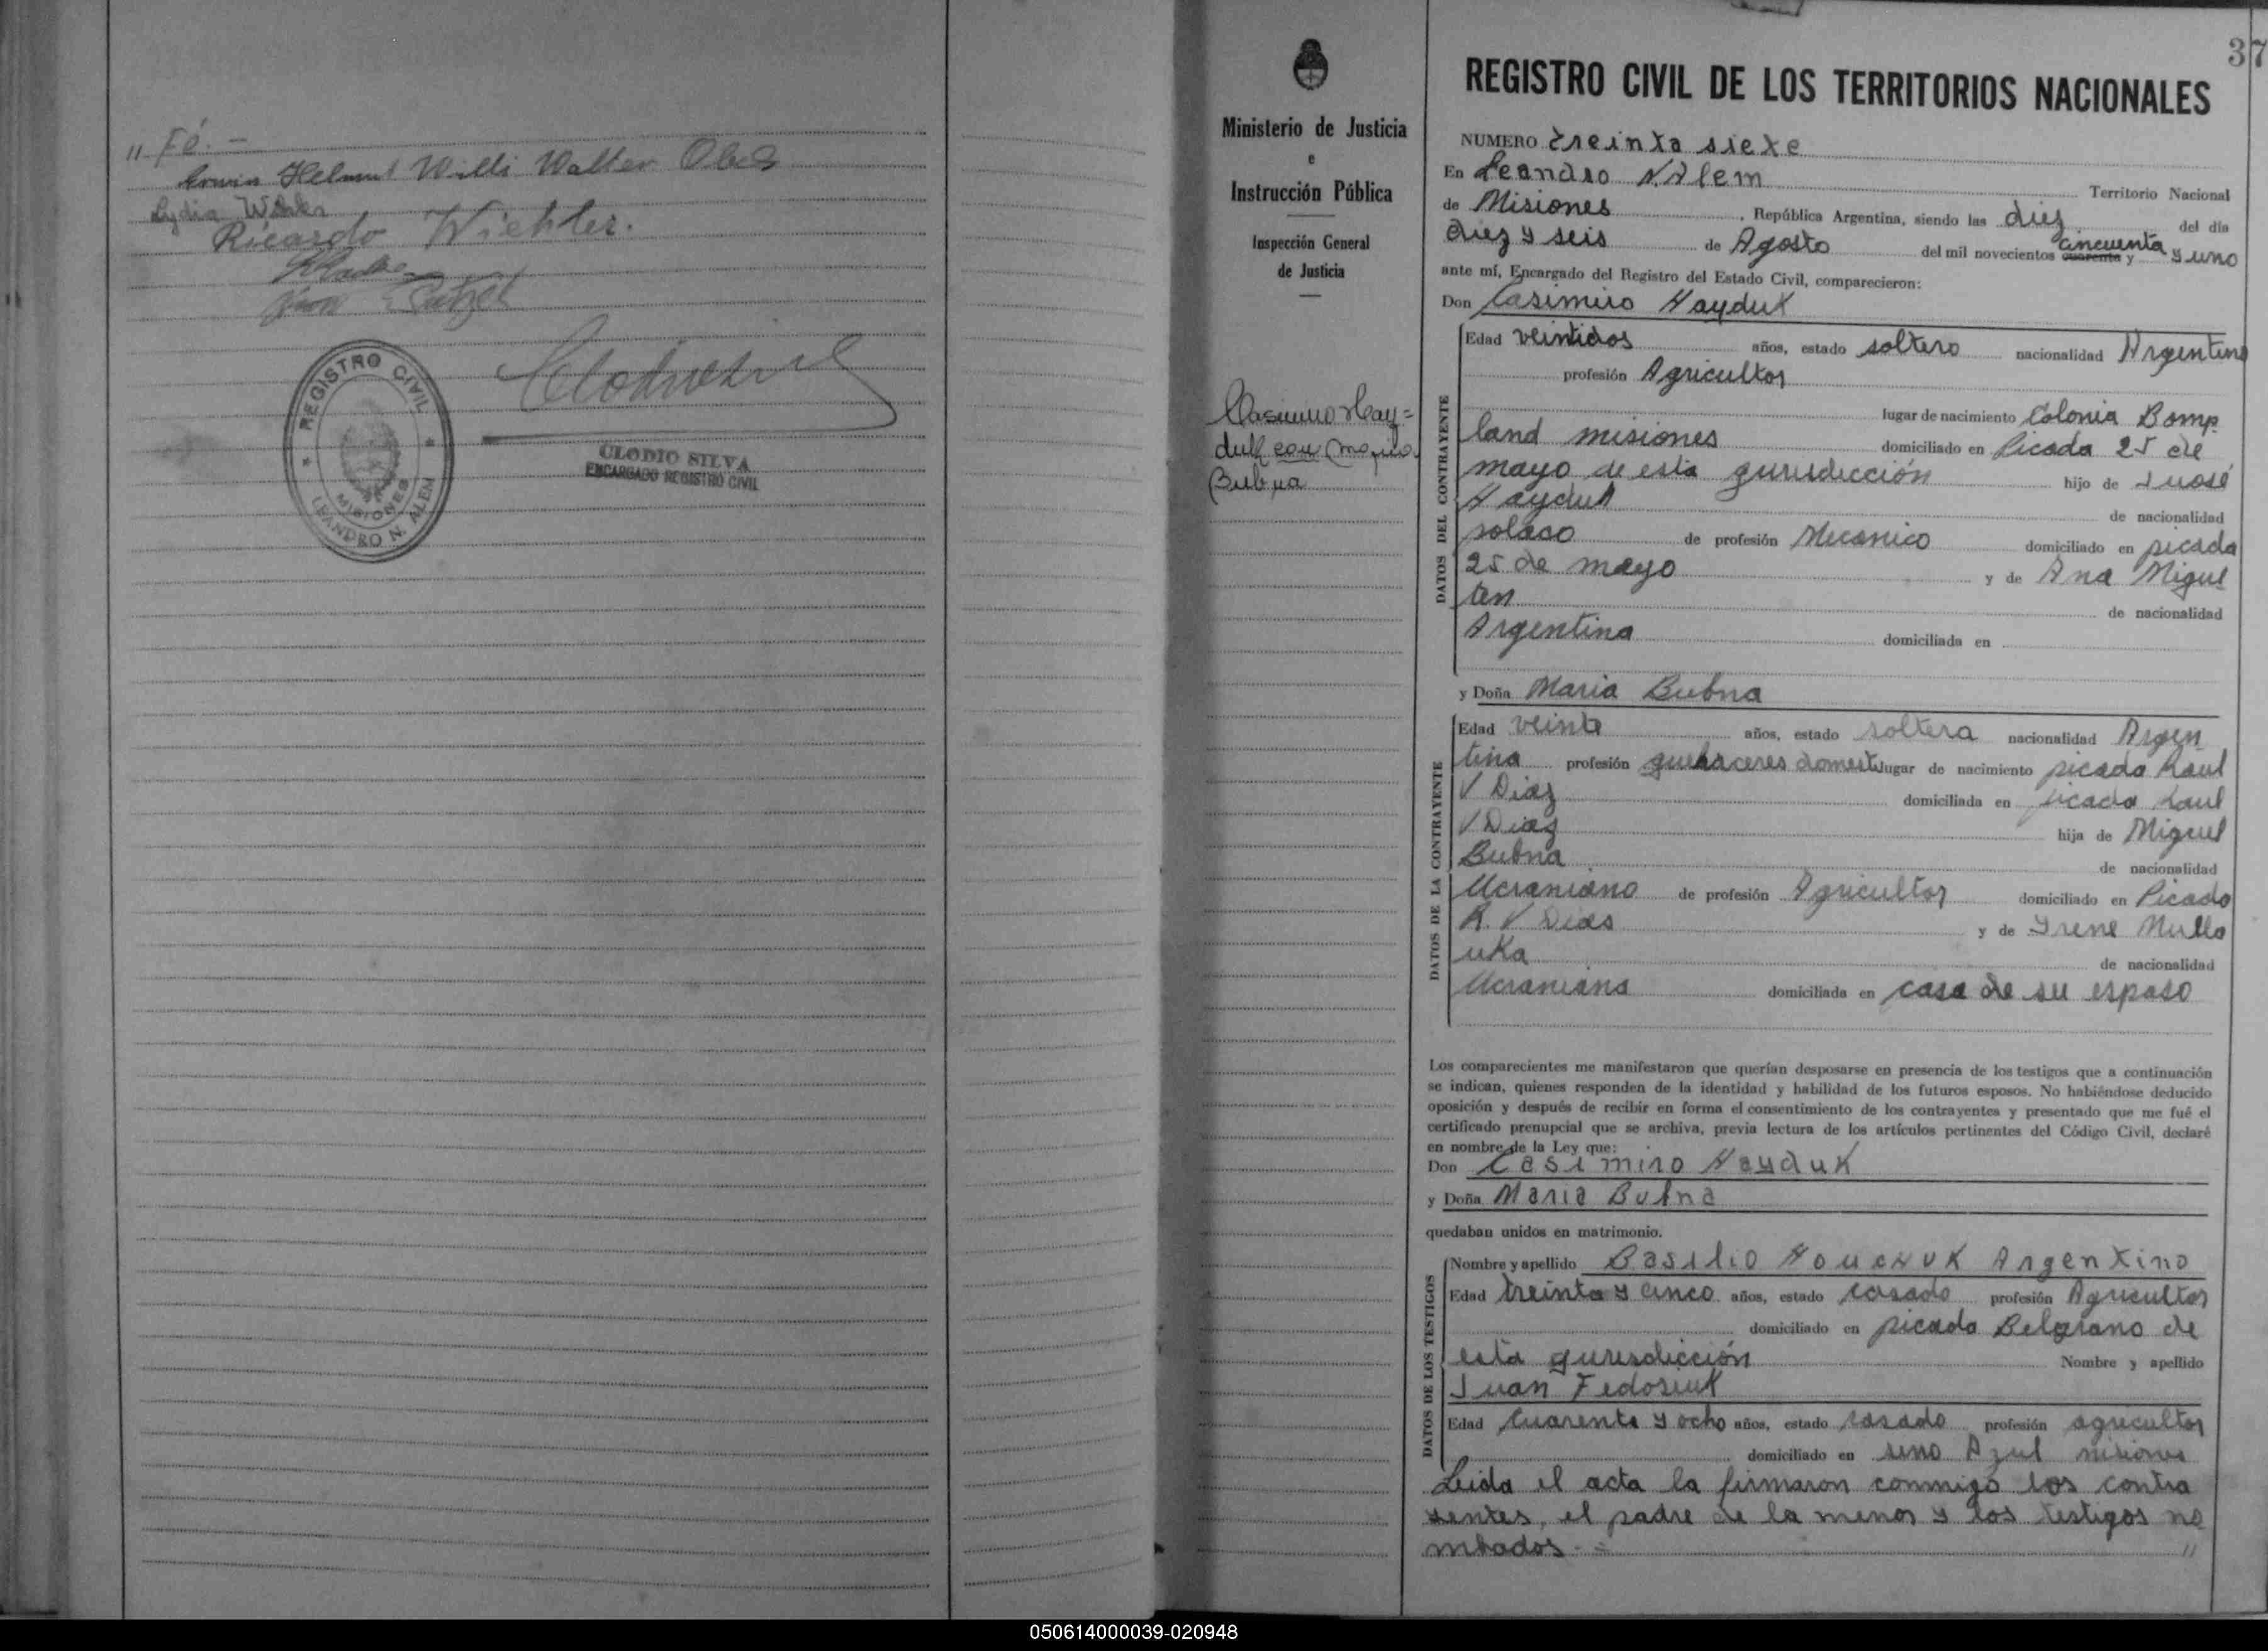 " Fé. -
Erwin Helmut Willi Walter
Lydia
Ricardo Wichter.
REGISTRO CIVIL
MISIONES
LEANDRO N. ALEM
CLODIO SILVA
ENCARGADO REGISTRO CIVIL
Ministerio de Justicia
e
Instrucción Pública
Inspección General
de Justicia
Casimiro Hay=
duk con Maria
Bubna
37
REGISTRO CIVIL DE LOS TERRITORIOS NACIONALES
NUMERO treinta siete
En Leandro N. Alem Territorio Nacional
de Misiones, República Argentina, siendo las diez del día
diez y seis de Agosto del mil novecientos cuarenta y cincuenta y uno
ante mí, Encargado del Registro del Estado Civil, comparecieron:
Don Casimiro Hayduk
DATOS DEL CONTRAYENTE
Edad veintidos años, estado soltero nacionalidad Argentino
profesión Agricultor
lugar de nacimiento Colonia Bomp
land misiones domiciliado en Picada 25 de
mayo de esta gurisdicción hijo de Juosé
Hayduk de nacionalidad
polaco de profesión Mecanico domiciliado en picada
25 de mayo y de Ana Migul
ten de nacionalidad
Argentina domiciliada en
y Doña Maria Bubna
DATOS DE LA CONTRAYENTE
Edad veinte años, estado soltera nacionalidad Argen
tina profesión quehaceres domest lugar de nacimiento picada Raul
V Diaz domiciliada en picada Raul
V Diaz hija de Miguel
Bubna de nacionalidad
Ucraniano de profesión Agricultor domiciliado en Picada
R. V Dias y de Irene Mulla
uka de nacionalidad
Ucraniana domiciliada en casa de su esposo
Los comparecientes me manifestaron que querían desposarse en presencia de los testigos que a continuación
se indican, quienes responden de la identidad y habilidad de los futuros esposos. No habiéndose deducido
oposición y después de recibir en forma el consentimiento de los contrayentes y presentado que me fué el
certificado prenupcial que se archiva, previa lectura de los artículos pertinentes del Código Civil, declaré
en nombre de la Ley que:
Don Casimiro Hayduk
y Doña Maria Bubna
quedaban unidos en matrimonio.
DATOS DE LOS TESTIGOS
Nombre y apellido Basilio Argentino
Edad treinta y cinco años, estado casado profesión Agricultor
domiciliado en picada Belgrano de
esta gurisdicción Nombre y apellido
Juan Fedosiuk
Edad Cuarenta y ocho años, estado casado profesión agricultor
domiciliado en Azul misiones
Leida el acta la firmaron conmigo los contra
yentes, el padre de la menor y los testigos no
mbados - = "
050614000039-020948